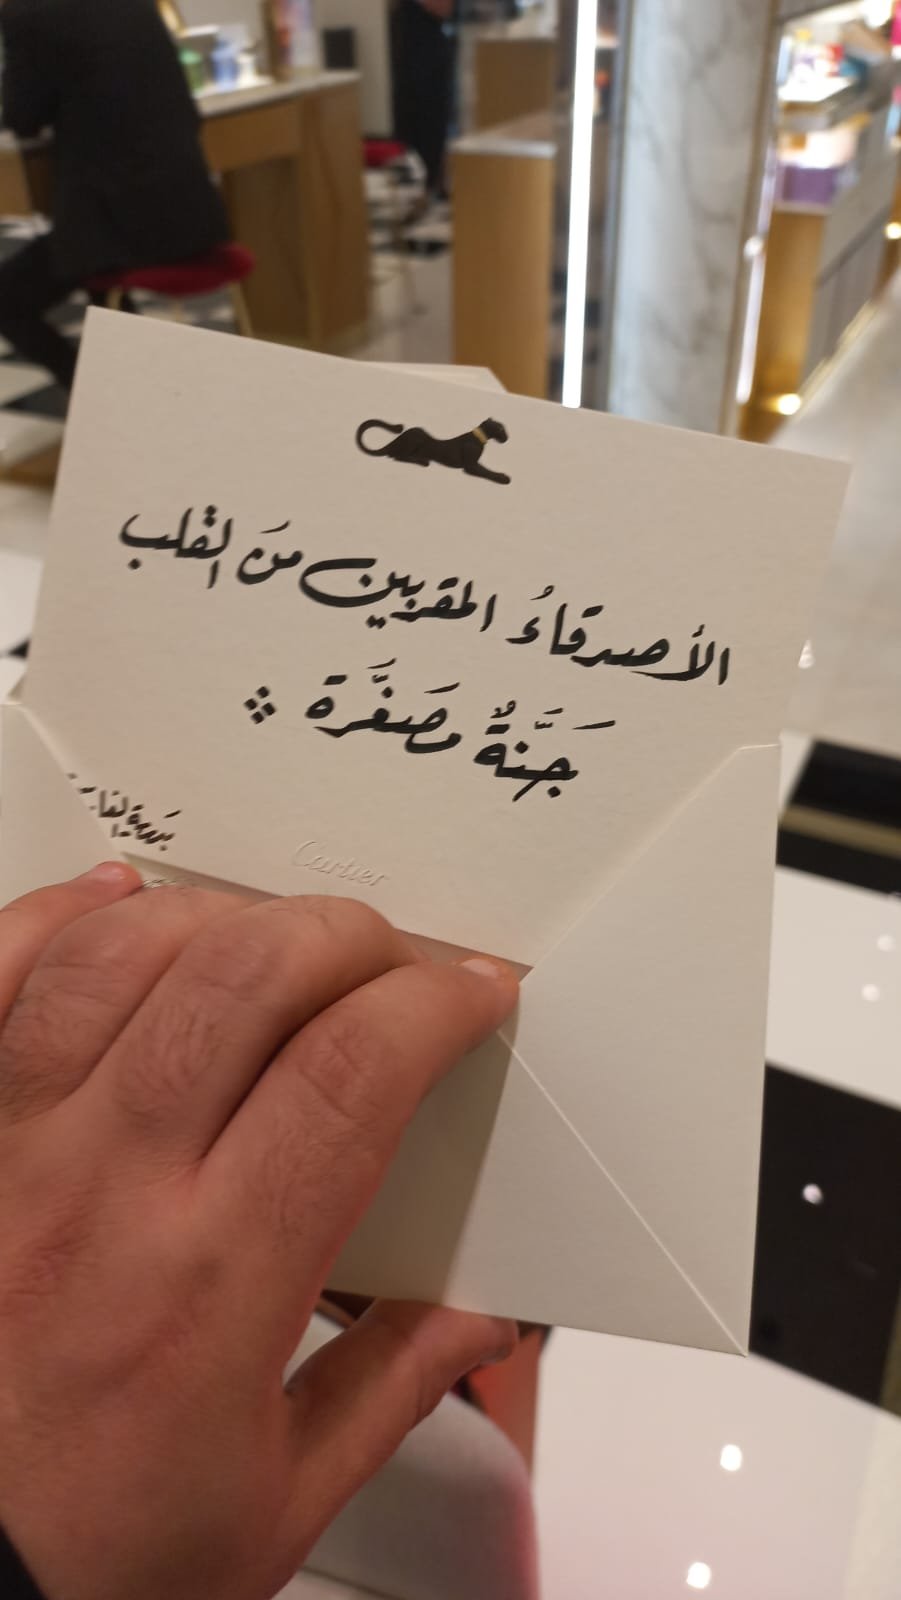 الأصدقاءُ المقربين منَ القلب
جَنَّةٌ مصَغَّرَة
Cartier